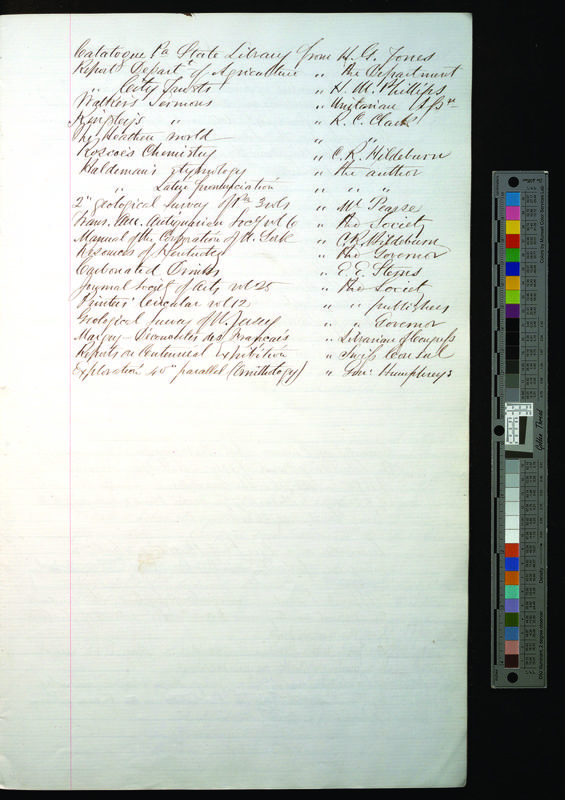 Catalogue Pa State Library from H. G. Jones
Report Departt of Agriculture " the Department
" City Trusts " H. M. Phillips
Walker's Sermons " Unitarian Assn
Kingsley's " " R. C. Clark
The Heathen World " "
Roscoe's Chemistry " C. R. Hildeburn
Haldeman's Etymology " the author
" Latin Pronunciation " " "
2d Geological Survey of Pa 3 vols " Mr Pearse
Trans. Am. Antiquarian Socy vol 6 " the Society
Manual of the Corporation of N. York " C. R. Hildeburn
Resources of Kentucky " the Governor
Carbonated Drinks " E. E. Stones
Journal Society of Arts vol 25 " the Society
Printers' Circular vol 12 " " publishers
Geological Survey of N. Jersey " " Governor
Margry – Découvertes des Français " Librarian of Congress
Reports on Centennial Exhibition "
Exploration 40th parallel (Ornithology) " Genl Humphreys